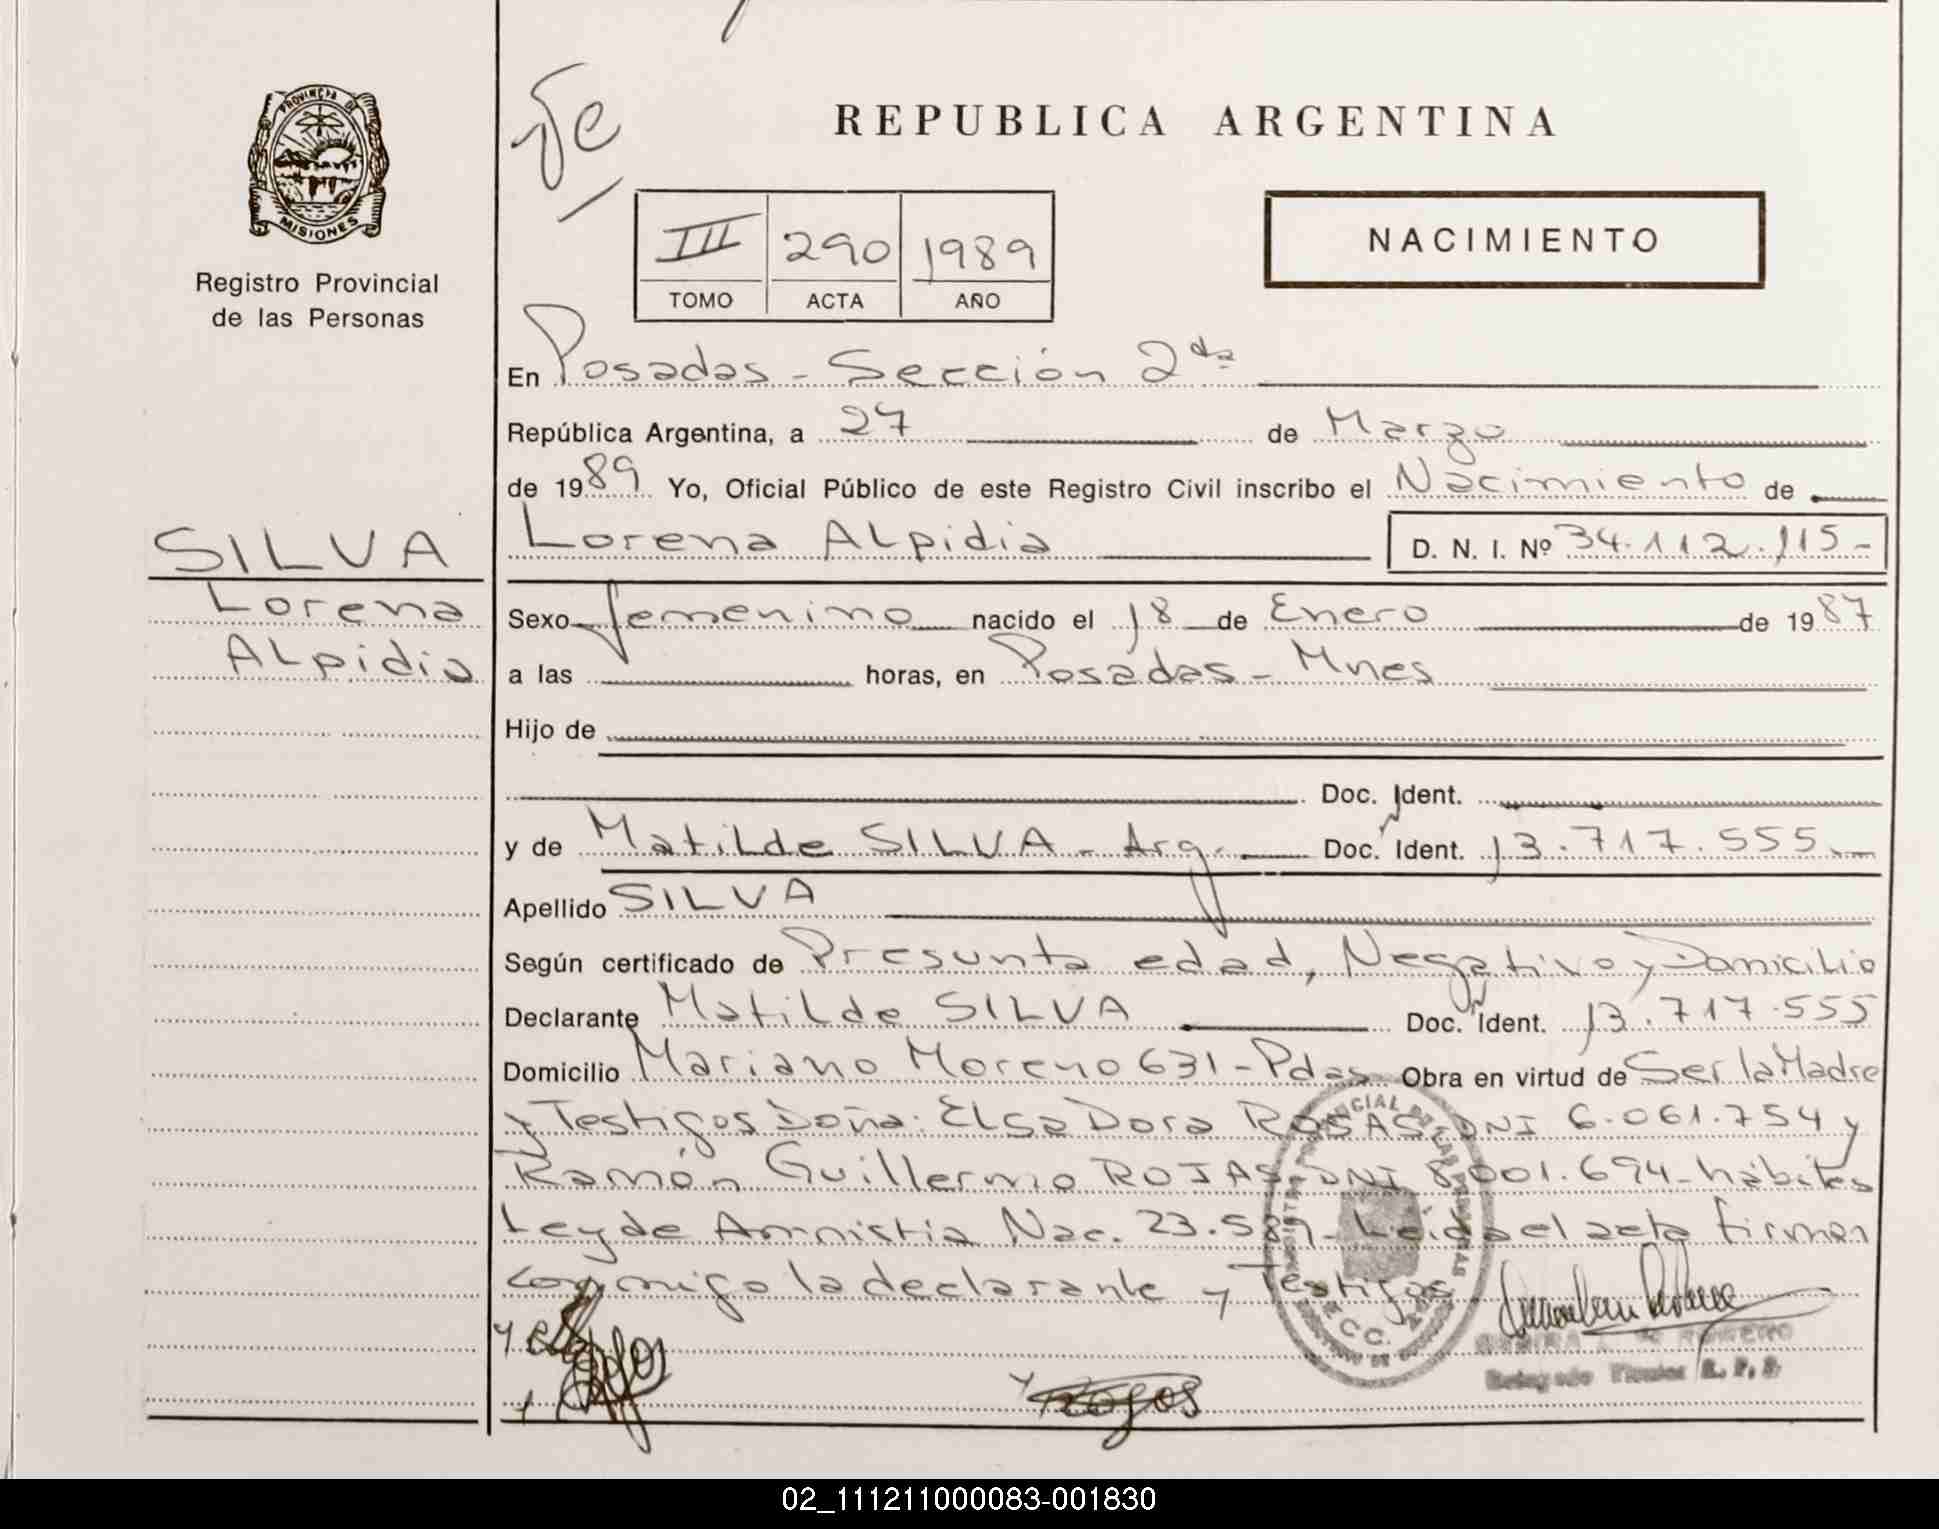 PROVINCIA DE
MISIONES
Registro Provincial
de las Personas
REPUBLICA ARGENTINA
III 290 1989
TOMO ACTA AÑO
NACIMIENTO
En Posadas - Sección 2da
República Argentina, a 27 de Marzo
de 1989 Yo, Oficial Público de este Registro Civil inscribo el Nacimiento de
SILVA
Lorena
Alpidia
Lorena Alpidia D. N. I. Nº 34.112.115-
Sexo femenino nacido el 18 de Enero de 1987
a las horas, en Posadas - Mnes
Hijo de
Doc. Ident.
y de Matilde SILVA - Arg. Doc. Ident. 13.717.555.-
Apellido SILVA
Según certificado de Presunta edad, Negativo y Domicilio
Declarante Matilde SILVA Doc. Ident. 13.717.555
Domicilio Mariano Moreno 631 - Pdas Obra en virtud de Ser la Madre
y Testigos Doña: Elsa Dora ROSAS DNI 6.061.754 y
Ramón Guillermo ROJAS DNI 8.001.694 - hábiles
Ley de Amnistia Nac. 23.589 - Leida el acta firman
conmigo la declarante y Testigos
Rojos
02_111211000083-001830